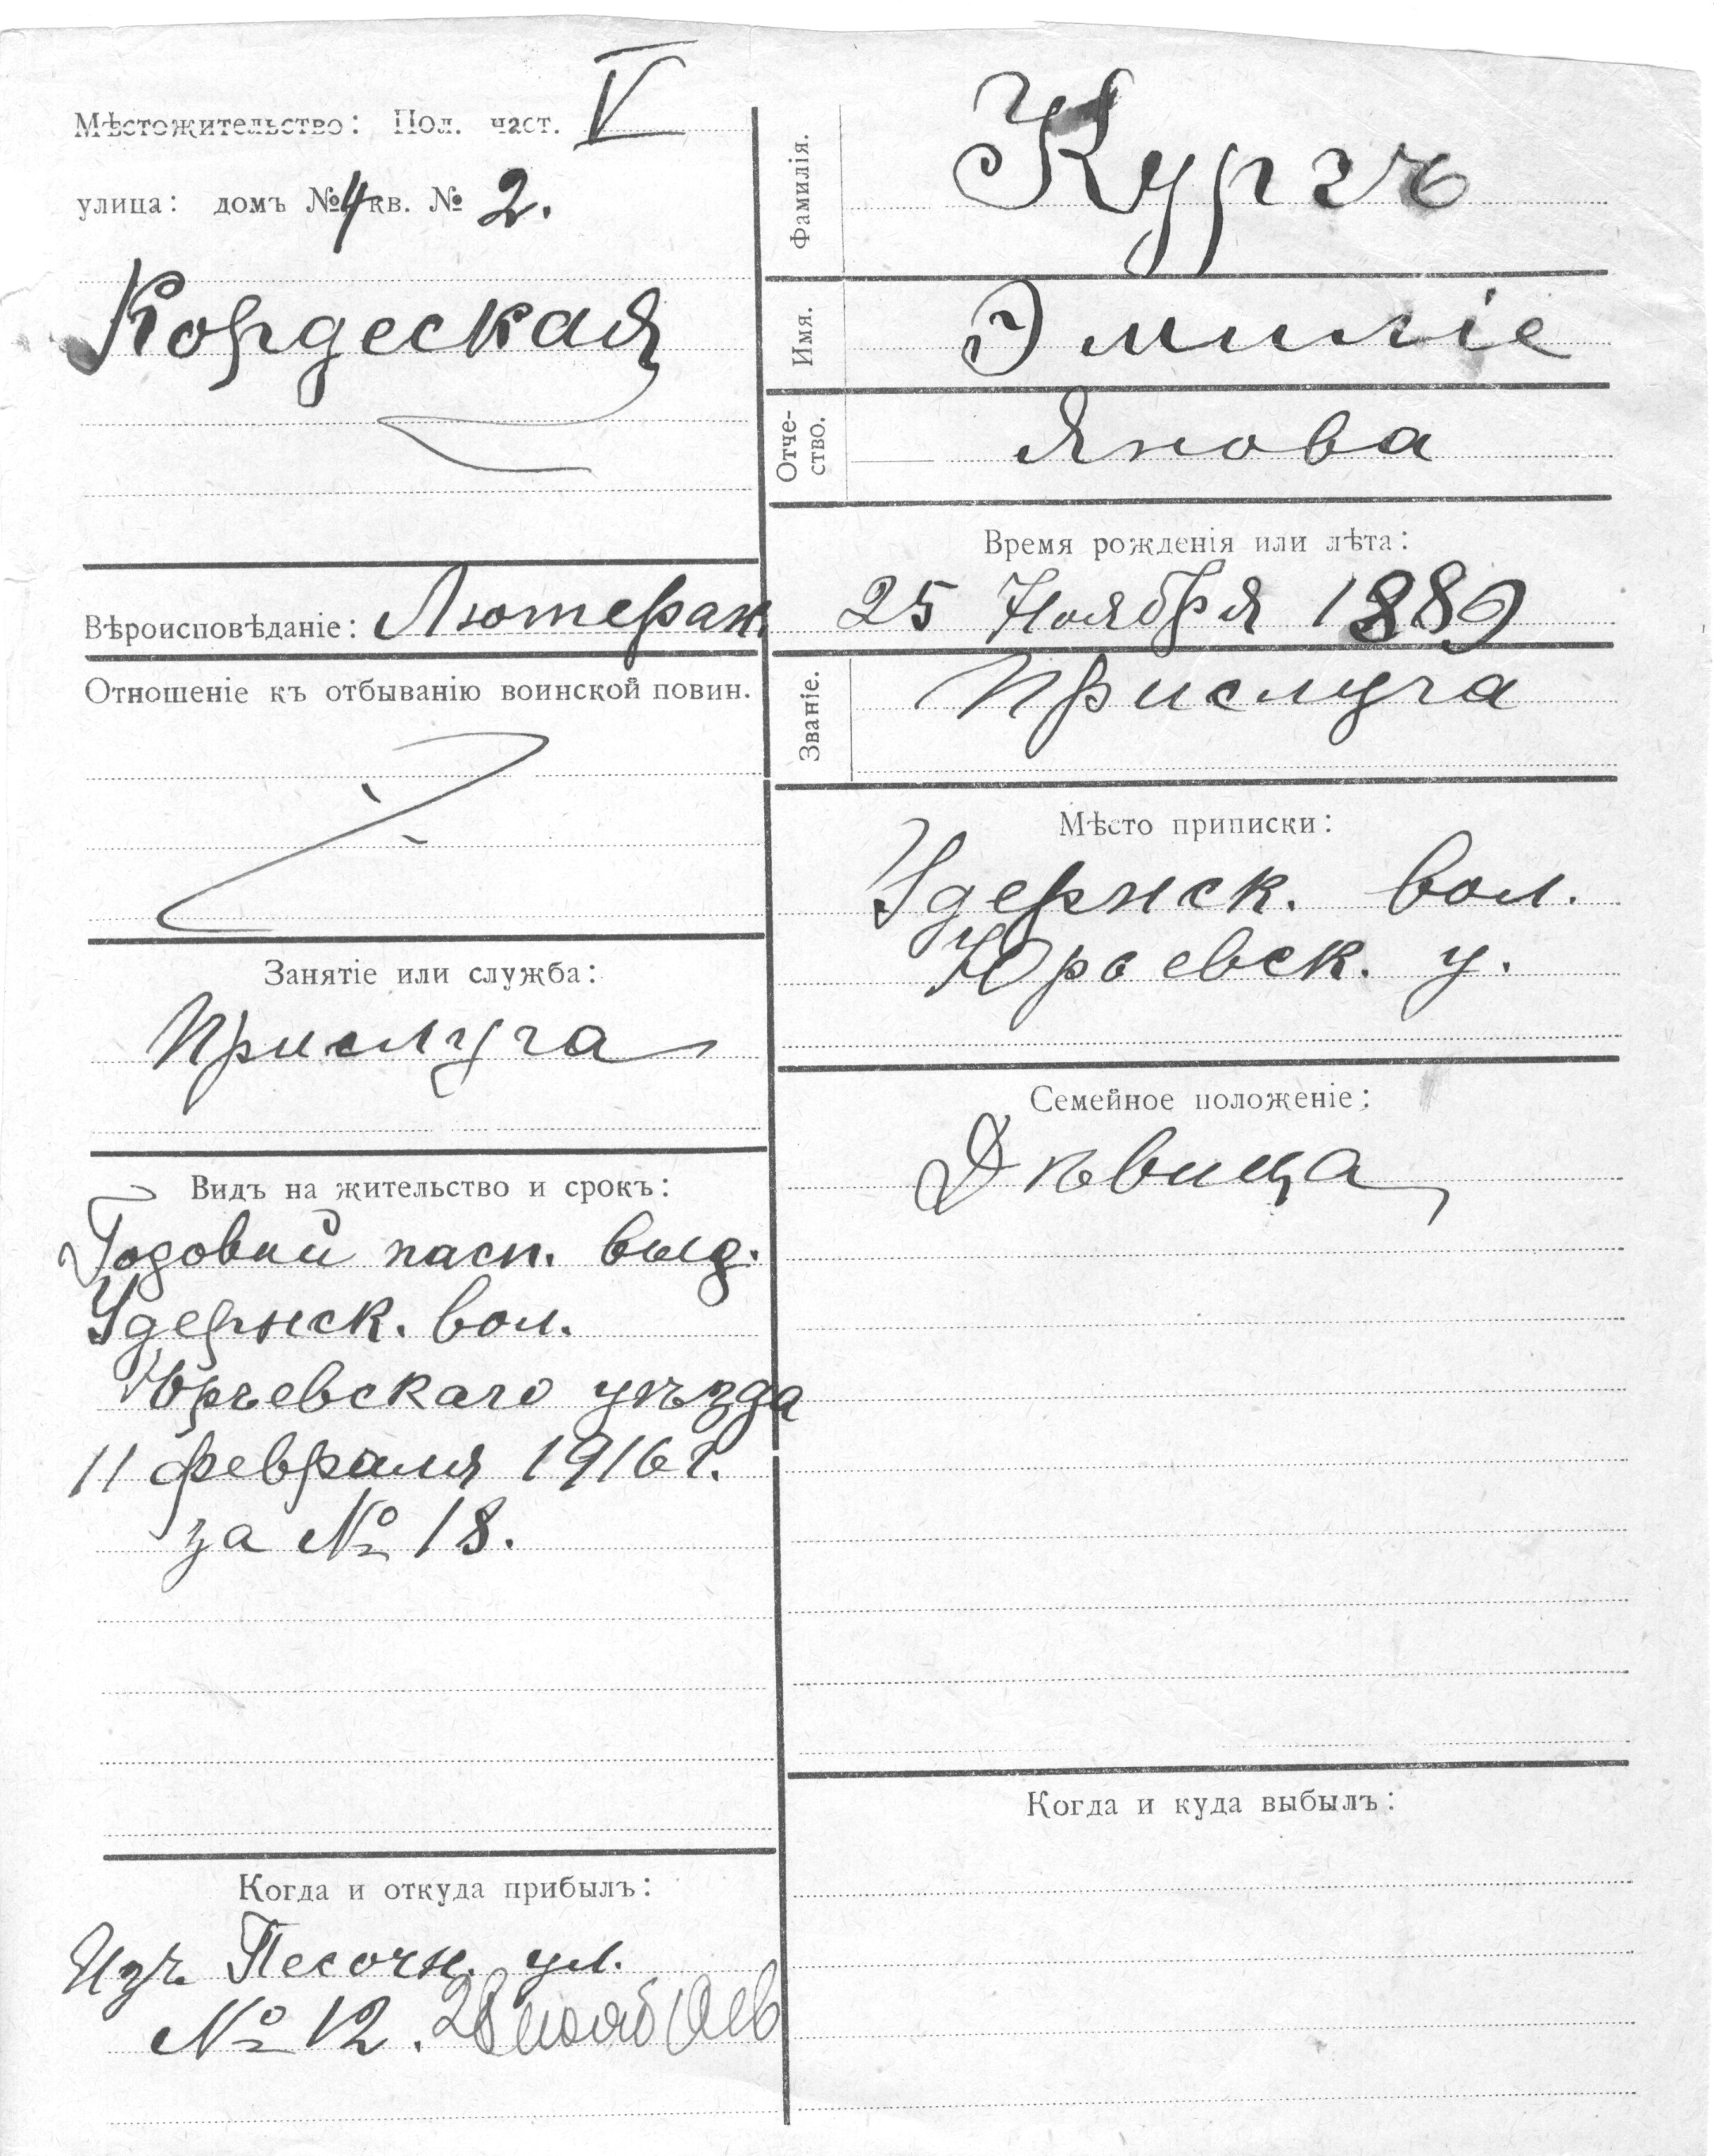 Мѣстожительство: Пол. част. V
улица: домъ № 4 кв. № 2.
Кордеская
Вѣроисповѣданіе: Лютеран.
Отношеніе къ отбыванію воинской повин.
Занятіе или служба:
Прислуга
Видъ на жительство и срокъ:
Годовой пасп. выд.
Удернск. вол.
Юрьевскаго уѣзда
11 февраля 1916 г.
за № 18.
Когда и откуда прибылъ:
Изъ Песочн. ул.
№ 12. 28
Фамилія.
Кургъ
Имя.
Эмиліе
Отче-
ство.
Янова
Время рожденія или лѣта:
25 Ноября 1889
Званіе.
Прислуга
Мѣсто приписки:
Удернск. вол.
Юрьевск. у.
Семейное положеніе:
Дѣвица
Когда и куда выбылъ: